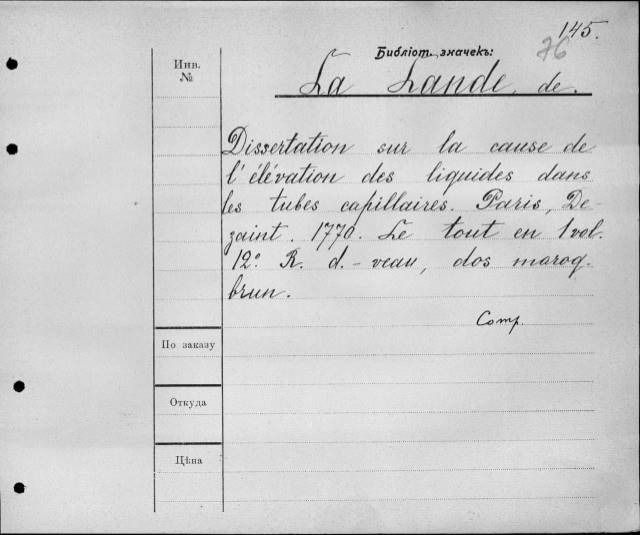 145.
76
Библіот. значекъ:
Инв.
№
La Lande, de.
Dissertation sur la cause de
l'élévation des liquides dans
les tubes capillaires. Paris, De-
zaint. 1770. Le tout en 1 vol.
12º. R. d.-veau, dos maroq.
brun.
Comp.
По заказу
Откуда
Цѣна